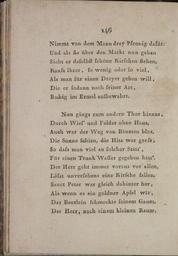 146
Nimmt von dem Mann drey Pfennig dafür.
Und als er über den Markt nun gehen
Sieht er daselbst schöne Kirschen stehen,
Kauft ihrer, so wenig oder so viel,
Als man für einen Dreyer geben will,
Die er sodann nach seiner Art,
Ruhig im Ermel aufbewahrt.
Nun gings zum andern Thor hinaus,
Durch Wies' und Felder ohne Haus,
Auch war der Weg von Bäumen blos,
Die Sonne schien, die Hitz war groß,
So daß man viel an solcher Stätt',
Für einen Trank Wasser gegeben hätt'.
Der Herr geht immer voraus vor allen,
Läßt unversehens eine Kirsche fallen.
Sanct Peter war gleich dahinter her,
Als wenn es ein goldner Apfel wär;
Das Beerlein schmeckte seinem Gaum.
Der Herr, nach einem kleinen Raum,